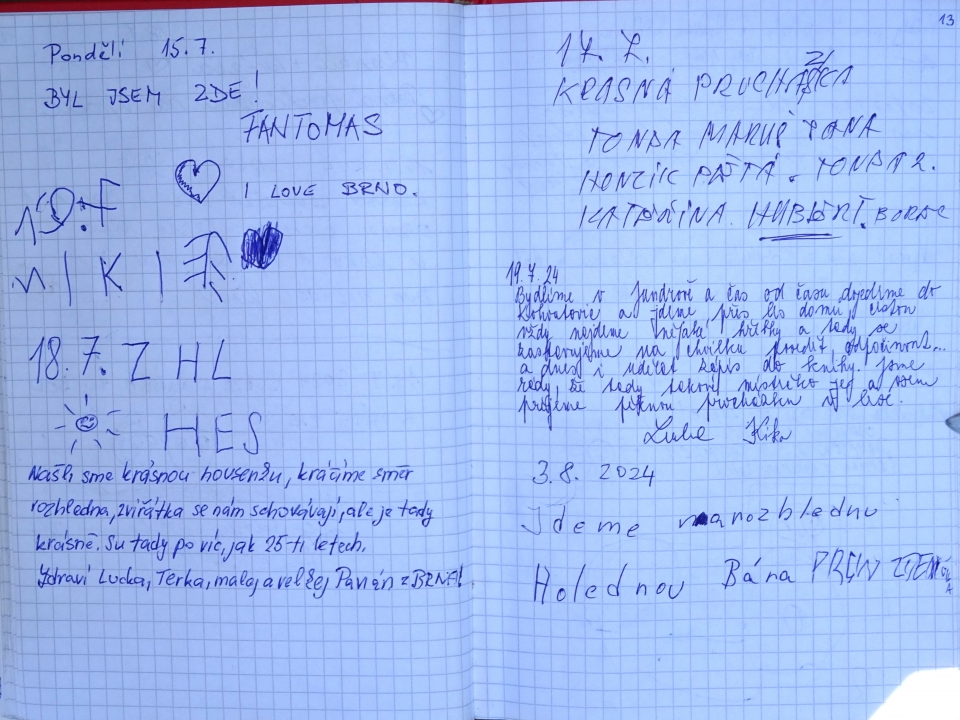 Pondělí 15.7.
BYL JSEM ZDE!
FANTOMAS
I LOVE BRNO.
NIKI
18.7. Z HL
HES
Našli sme krásnou housenku, kráčíme směr
rozhledna, zvířátka se nám schovávají, ale je tady
krásně. Su tady po víc, jak 25-ti letech.
Zdraví Lucka, Terka, malej a velkej Pavián z BRNA!
13
17. 7.
KRASNÁ PROCHÁZKA
TONDA MARUŠ JANA
HONZÍK TONDA 2.
KATEŘINA.
19.7.24
Bydlíme v Jundrově a čas od času dojedeme do
Kohoutovic a jdeme přes les domů.
vždy najdeme nějaké hříbky a tady se
na chvilku posedět odpočinout...
a dnes i udělat zápis do knihy. Jsme
rády, že tady takové místečko je a všem
přejeme pěknou procházku v lese.
3.8. 2024
Jdeme na rozhlednu
Holednou Bára